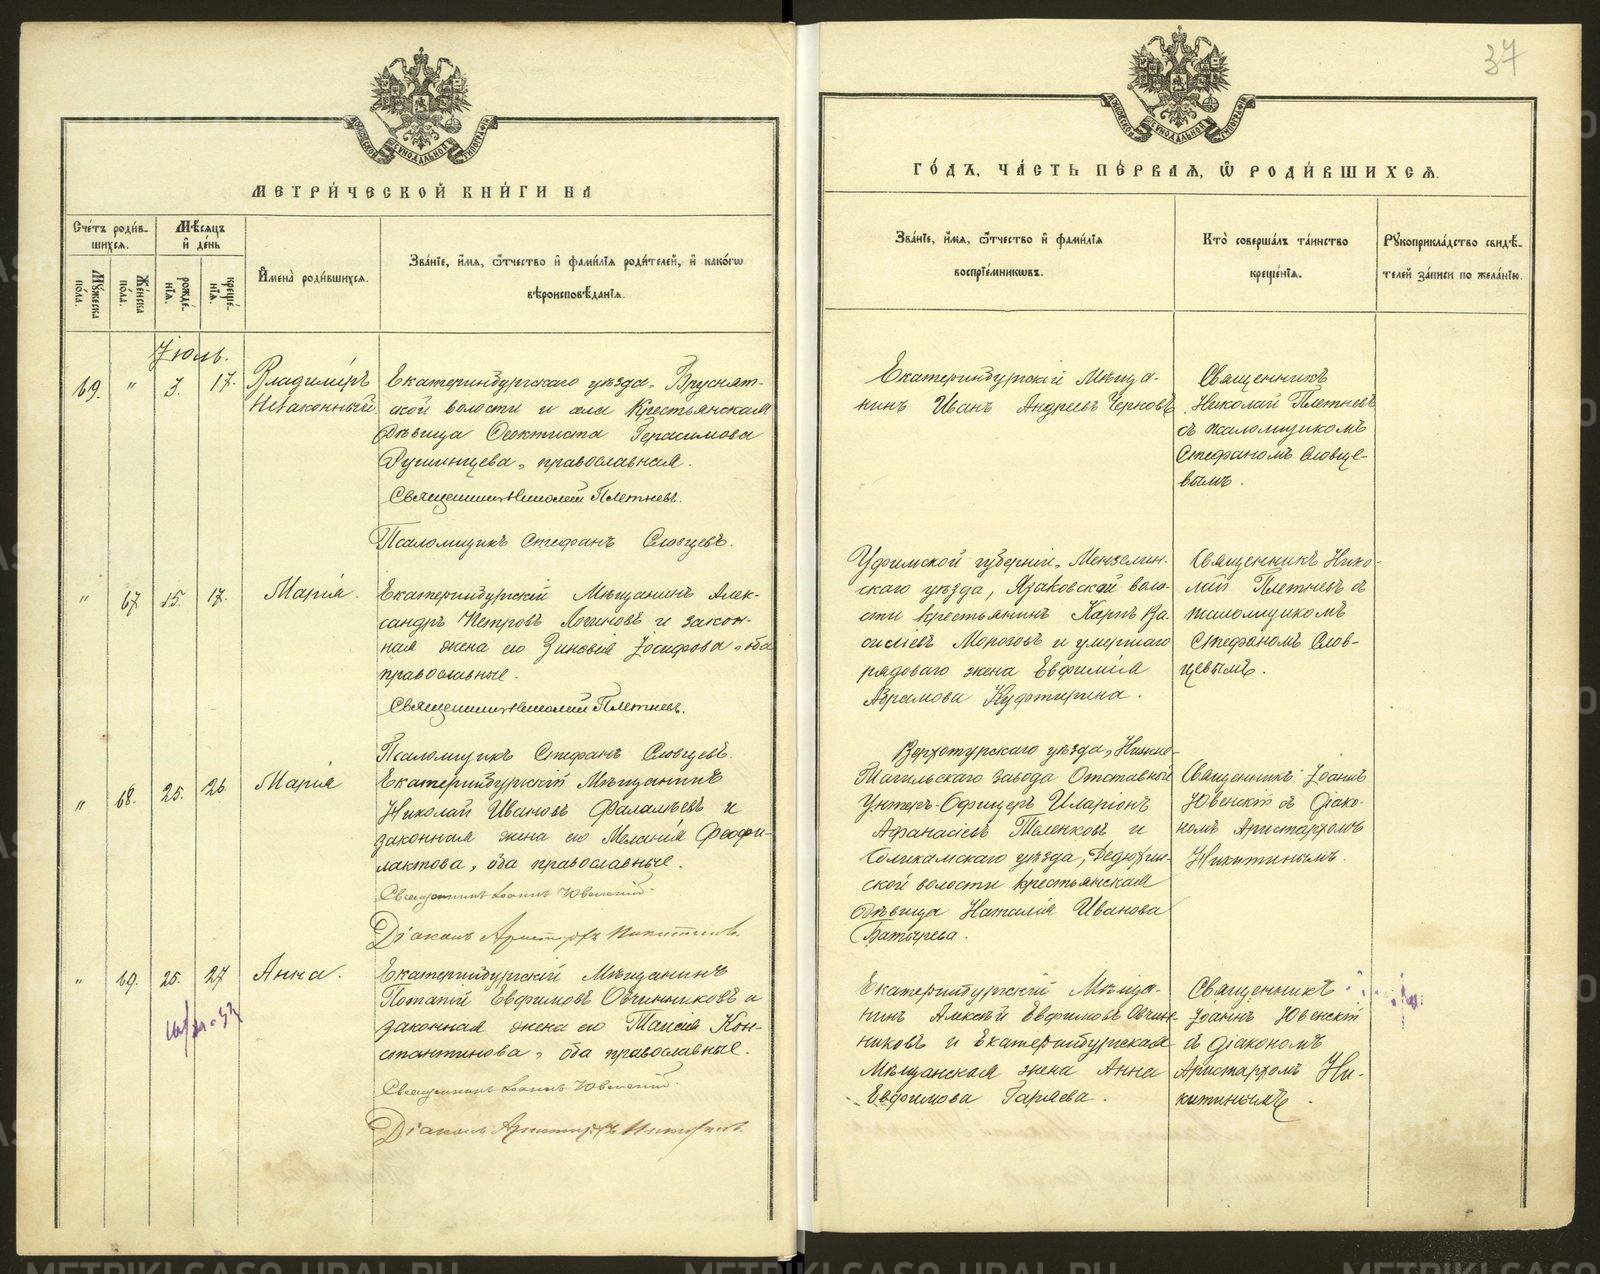 37
МЕТРИ́ЧЕСКОЙ КНИ́ГИ НА
Сче́тъ роди́в-
шихся.
Мѣ́сяцъ
и҆ де́нь
Мꙋжеска
по́ла.
Же́нска
по́ла.
рожде́-
нїѧ.
креще́-
нїѧ.
И҆мена̀ роди́вшихся.
Зва́нїе, и҆́мѧ, ѻ҆́тчество и҆ фами́лїѧ роди́телей, и҆ како́гѡ
вѣроисповѣ́данїѧ.
Іюль.
69. " 3. 17. Владиміръ
Незаконный
Екатеринбургскаго уѣзда, Бруснят-
ской волости и села Крестьянская
дѣвица Феоктиста Герасимова
православная.
Священникъ Николай Плетневъ.
Псаломщикъ Стефанъ Словцевъ.
" 67 15. 17. Марія.
Екатеринбургскій Мѣщанинъ Алек-
сандръ Петровъ Логиновъ и закон-
ная жена его Зиновія Іосифова, оба
православные.
Священникъ Николай Плетневъ.
Псаломщикъ Стефанъ Словцевъ.
" 68. 25. 26. Марія
Екатеринбургскій Мѣщанинъ
Николай Ивановъ Фалалѣевъ и
законная жена его Меланія Феофи-
лактова, оба православные.
Священникъ Іоаннъ Ювенскій.
Діаконъ Аристархъ Никитинъ.
" 69. 25. 27 Анна.
Екатеринбургскій Мѣщанинъ
Потапій Евфимовъ Овчинниковъ и
законная жена его Таисія Кон-
стантинова, оба православные.
Священникъ Іоаннъ Ювенскій.
Діаконъ Аристархъ Никитинъ.
ГО́ДЪ, ЧА́СТЬ ПЕ́РВАѦ, Ѡ҆ РОДИ́ВШИХСѦ.
Зва́нїе, и҆́мѧ, ѻ҆́тчество и҆ фами́лїѧ
воспрїе́мниковъ.
Кто̀ соверша́лъ та́инство
креще́нїѧ.
Рꙋкоприкла́дство свидѣ́-
телей за́писи по жела́нїю.
Екатеринбургскій Мѣща-
нинъ Иванъ Андреевъ Черновъ
Священникъ
Николай Плетневъ
съ псаломщикомъ
Стефаномъ Словце-
вымъ.
Уфимской губерніи, Мензелин-
скаго уѣзда, Языковской воло-
сти крестьянинъ Карпъ Ва-
сильевъ Морозовъ и умершаго
рядоваго жена Евфимія
Абрамова
Священникъ Нико-
лай Плетневъ съ
псаломщикомъ
Стефаномъ Слов-
цевымъ.
Верхотурскаго уѣзда, Нижне-
Тагильскаго завода Отставный
Унтеръ-Офицеръ Иларіонъ
Афанасіевъ Теленковъ и
Соликамскаго уѣзда, Дедюхин-
ской волости крестьянская
дѣвица Наталія Иванова
Батырева.
Священникъ Іоаннъ
Ювенскій съ діако-
номъ Аристархомъ
Никитинымъ.
Екатеринбургскій Мѣща-
нинъ Алексѣй Евфимовъ Овчин-
никовъ и Екатеринбургская
Мѣщанская жена Анна
Евфимова Гаряева.
Священникъ
Іоаннъ Ювенскій
съ діакономъ
Аристархомъ Ни-
китинымъ.